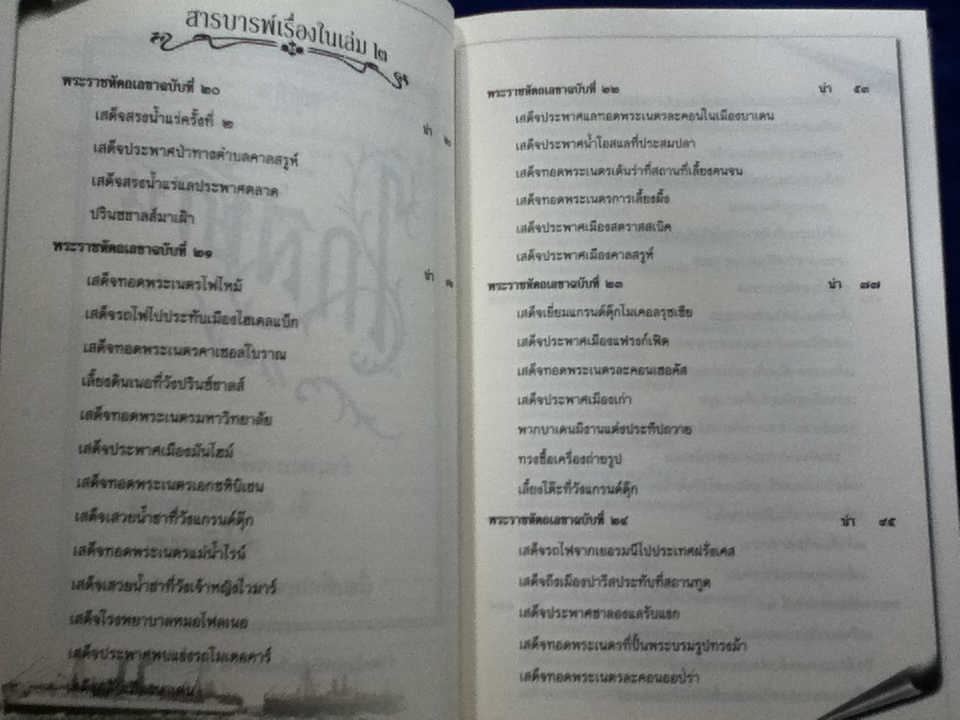 สารบารพ์เรื่องในเล่ม ๒
พระราชหัตถเลขาฉบับที่ ๒๐
เสด็จสรงน้ำแร่ครั้งที่ ๒ น่า ๒
เสด็จประพาศป่าทางตำบลคาลสรูห์
เสด็จสรงน้ำแร่แลประพาศตลาด
ปรินซชาลส์มาเฝ้า
พระราชหัตถเลขาฉบับที่ ๒๑ น่า
เสด็จทอดพระเนตรไฟไหม้
เสด็จรถไฟไปประทับเมืองไฮเดลเบิก
เสด็จทอดพระเนตรคาเซอลโบราณ
เลี้ยงดินเนอที่วังปรินซ์ชาลส์
เสด็จทอดพระเนตรมหาวิทยาลัย
เสด็จประพาศเมืองมันไฮม์
เสด็จทอดพระเนตรเอกซหิบิเชน
เสด็จเสวยน้ำชาที่วังแกรนด์ดุ๊ก
เสด็จทอดพระเนตรแม่น้ำไรน์
เสด็จเสวยน้ำชาที่วังเจ้าหญิงไวมาร์
เสด็จโรงพยาบาลหมอไฟลเนอ
เสด็จประพาศพบแข่งรถโมเตอคาร์
พระราชหัตถเลขาฉบับที่ ๒๒ น่า ๕๓
เสด็จประพาศแลทอดพระเนตรละคอนในเมืองบาเดน
เสด็จประพาศน้ำโอสแลที่ประสมปลา
เสด็จทอดพระเนตรเต้นรำที่สถานที่เลี้ยงคนจน
เสด็จทอดพระเนตรการเลี้ยงผึ้ง
เสด็จประพาศเมืองสตราสสเบิค
เสด็จประพาศเมืองคาลสรูห์
พระราชหัตถเลขาฉบับที่ ๒๓ น่า ๗๗
เสด็จเยี่ยมแกรนด์ดุ๊กไมเคอลรุซเซีย
เสด็จประพาศเมืองแฟรงก์เฟิต
เสด็จทอดพระเนตรละคอนเซอคัส
เสด็จประพาศเมืองเก่า
พวกบาเดนมีงานแต่งประทีปถวาย
ทรงซื้อเครื่องถ่ายรูป
เลี้ยงโต๊ะที่วังแกรนด์ดุ๊ก
พระราชหัตถเลขาฉบับที่ ๒๔ น่า ๙๕
เสด็จรถไฟจากเยอรมนีไปประเทศฝรั่งเศส
เสด็จถึงเมืองปารีสประทับที่สถานทูต
เสด็จประพาศชาลองแลรับแขก
เสด็จทอดพระเนตรที่ปั้นพระบรมรูปทรงม้า
เสด็จทอดพระเนตรละคอนออปร่า